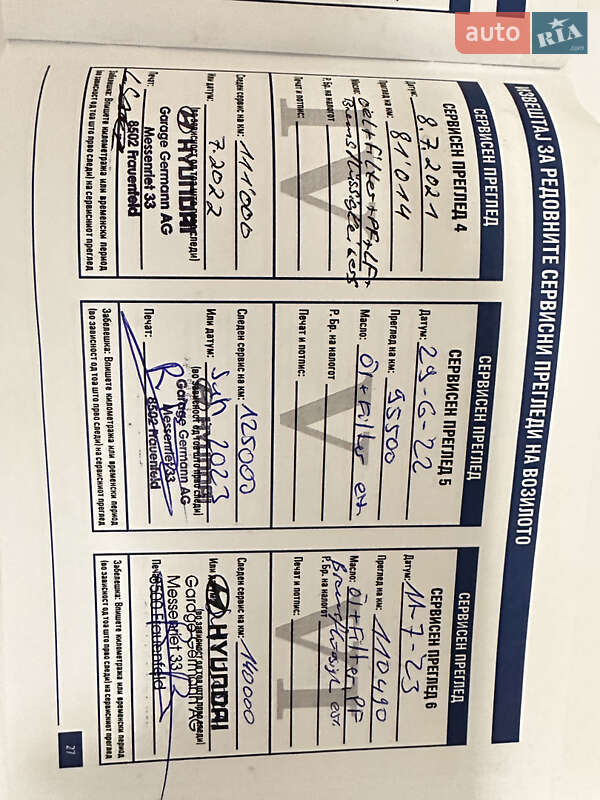 auto RIA.com
ИЗВЕШТАЈ ЗА РЕДОВНИТЕ СЕРВИСНИ ПРЕГЛЕДИ НА ВОЗИЛОТО
СЕРВИСЕН ПРЕГЛЕД
СЕРВИСЕН ПРЕГЛЕД 4
Датум: 8.7.2021
Преглед на км: 81'014
Масло: Oel + Filter + PF + LF +
Р. Бр. на налогот
Печат и потпис:
Следен сервис на км: 111'000
Или датум: 7.2022
(во зависност од тоа што прво следи)
HYUNDAI
Garage Germann AG
Messenriet 33
8502 Frauenfeld
Печат:
Забелешка: Впишете километража или временски период
(во зависност од тоа што прво следи) на сервисниот преглед
СЕРВИСЕН ПРЕГЛЕД
СЕРВИСЕН ПРЕГЛЕД 5
Датум: 29-6-22
Преглед на км: 95500
Масло: Öl + Filter
Р. Бр. на налогот
Печат и потпис:
Следен сервис на км: 125000
Или датум:
(во зависност од тоа што прво следи)
Garage Germann AG
Messenriet 33
8502 Frauenfeld
Печат:
Забелешка: Впишете километража или временски период
(во зависност од тоа што прво следи) на сервисниот преглед
СЕРВИСЕН ПРЕГЛЕД
СЕРВИСЕН ПРЕГЛЕД 6
Датум: 11-7-23
Преглед на км: 110490
Масло: Öl + Filter, PF
Р. Бр. на налогот
Печат и потпис:
Следен сервис на км: 140000
Или
HYUNDAI
(во зависност од тоа што прво следи)
Garage Germann AG
Messenriet 33
8500 Frauenfeld
Забелешка: Впишете километража или временски период
(во зависност од тоа што прво следи) на сервисниот преглед
27